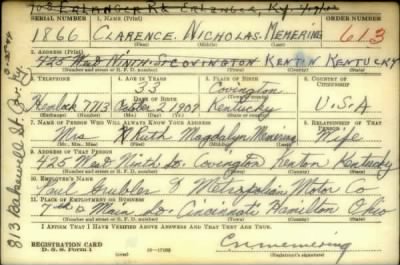 703 Erlanger Rd Erlanger, Ky.
SERIAL NUMBER 1. NAME (Print) ORDER NUMBER
1866 CLARENCE. NICHOLAS. MEMERING 613
(First) (Middle) (Last)
2. ADDRESS (Print)
425 West Ninth St COVINGTON KENTON KENTUCKY
(Number and street or R. F. D. number) (Town) (County) (State)
3. TELEPHONE 4. AGE IN YEARS 5. PLACE OF BIRTH 6. COUNTRY OF CITIZENSHIP
33 Covington
DATE OF BIRTH
Hemlock 7713 October 2 1907 Kentucky U.S.A
7. NAME OF PERSON WHO WILL ALWAYS KNOW YOUR ADDRESS 8. RELATIONSHIP OF THAT PERSON
Mrs Ruth Magdalyn Memering Wife
9. ADDRESS OF THAT PERSON
425 West Ninth St. Covington Kenton Kentucky
(Number and street or R. F. D. number) (Town) (County) (State)
10. EMPLOYER'S NAME
Paul Metropolitan Motor Co
11. PLACE OF EMPLOYMENT OR BUSINESS
7th & Main St. Cincinnati Hamilton Ohio
(Number and street or R. F. D. number) (Town) (County) (State)
I AFFIRM THAT I HAVE VERIFIED ABOVE ANSWERS AND THAT THEY ARE TRUE.
REGISTRATION CARD
D. S. S. Form 1
(Registrant's signature)
813 Bakewell St. Cov. Ky.